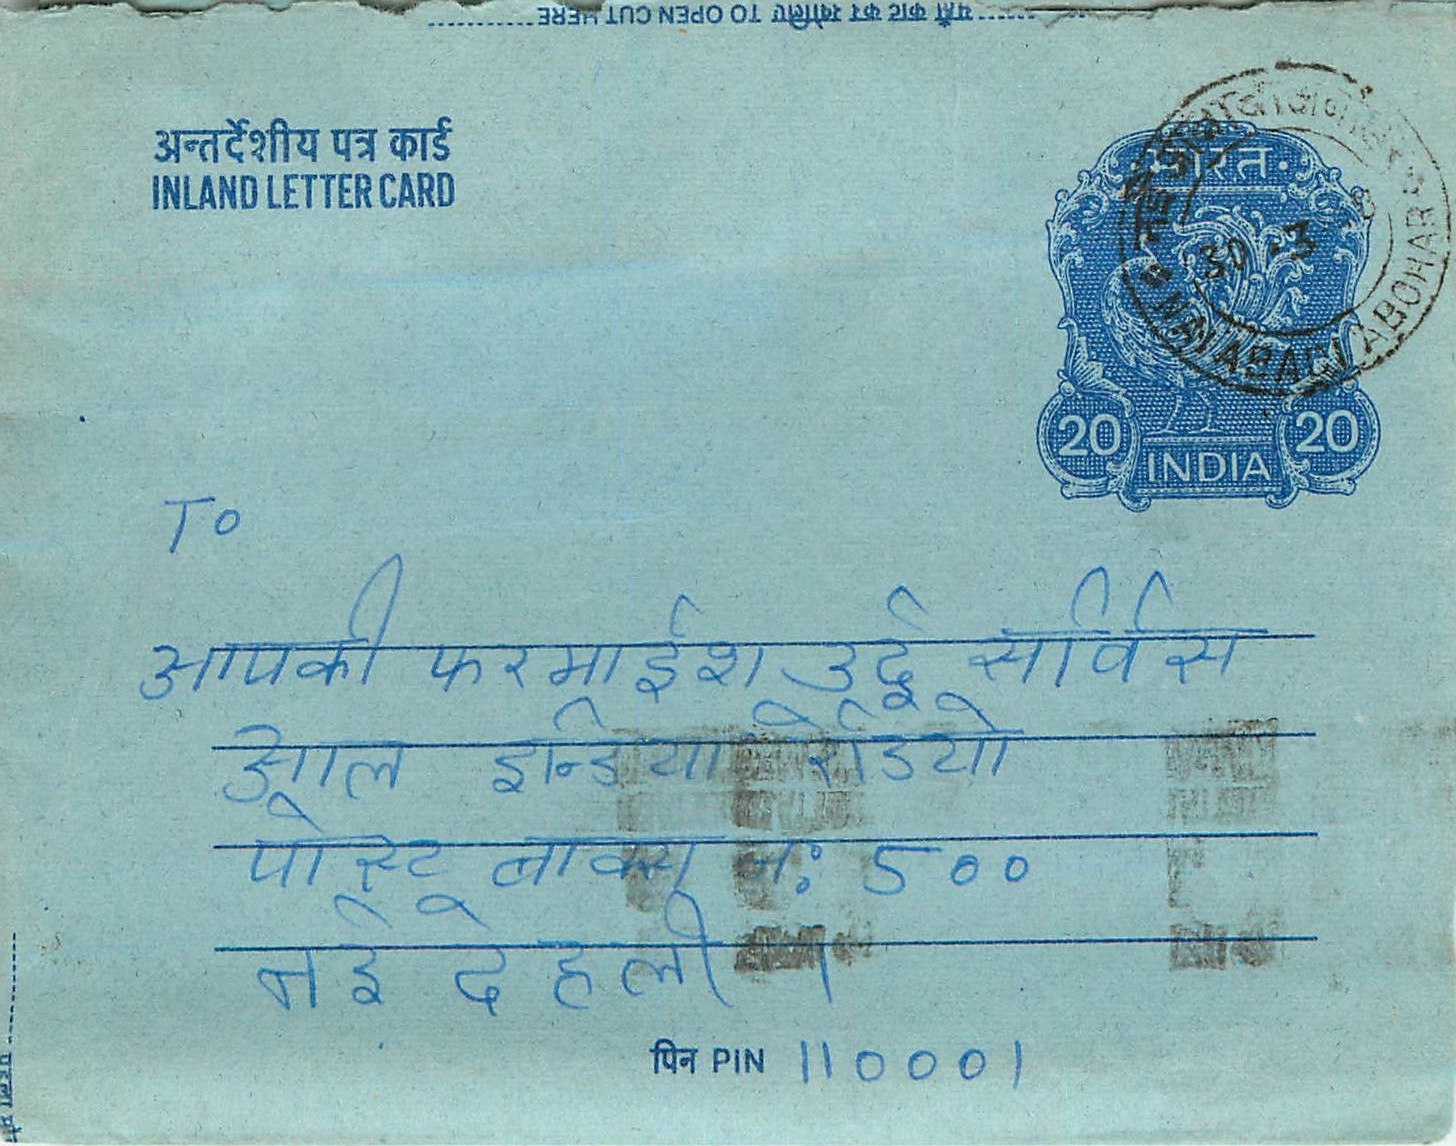 यहाँ काट कर खोलिए TO OPEN CUT HERE
अन्तर्देशीय पत्र कार्ड
INLAND LETTER CARD
भारत
30 -3
NAI ABADI ABOHAR
20 20
INDIA
To
आपकी फरमाईश उर्दू सर्विस
आल इन्डिया रेडियो
पोस्ट बाक्स नः 500
नई देहली 1
पिन PIN 110001